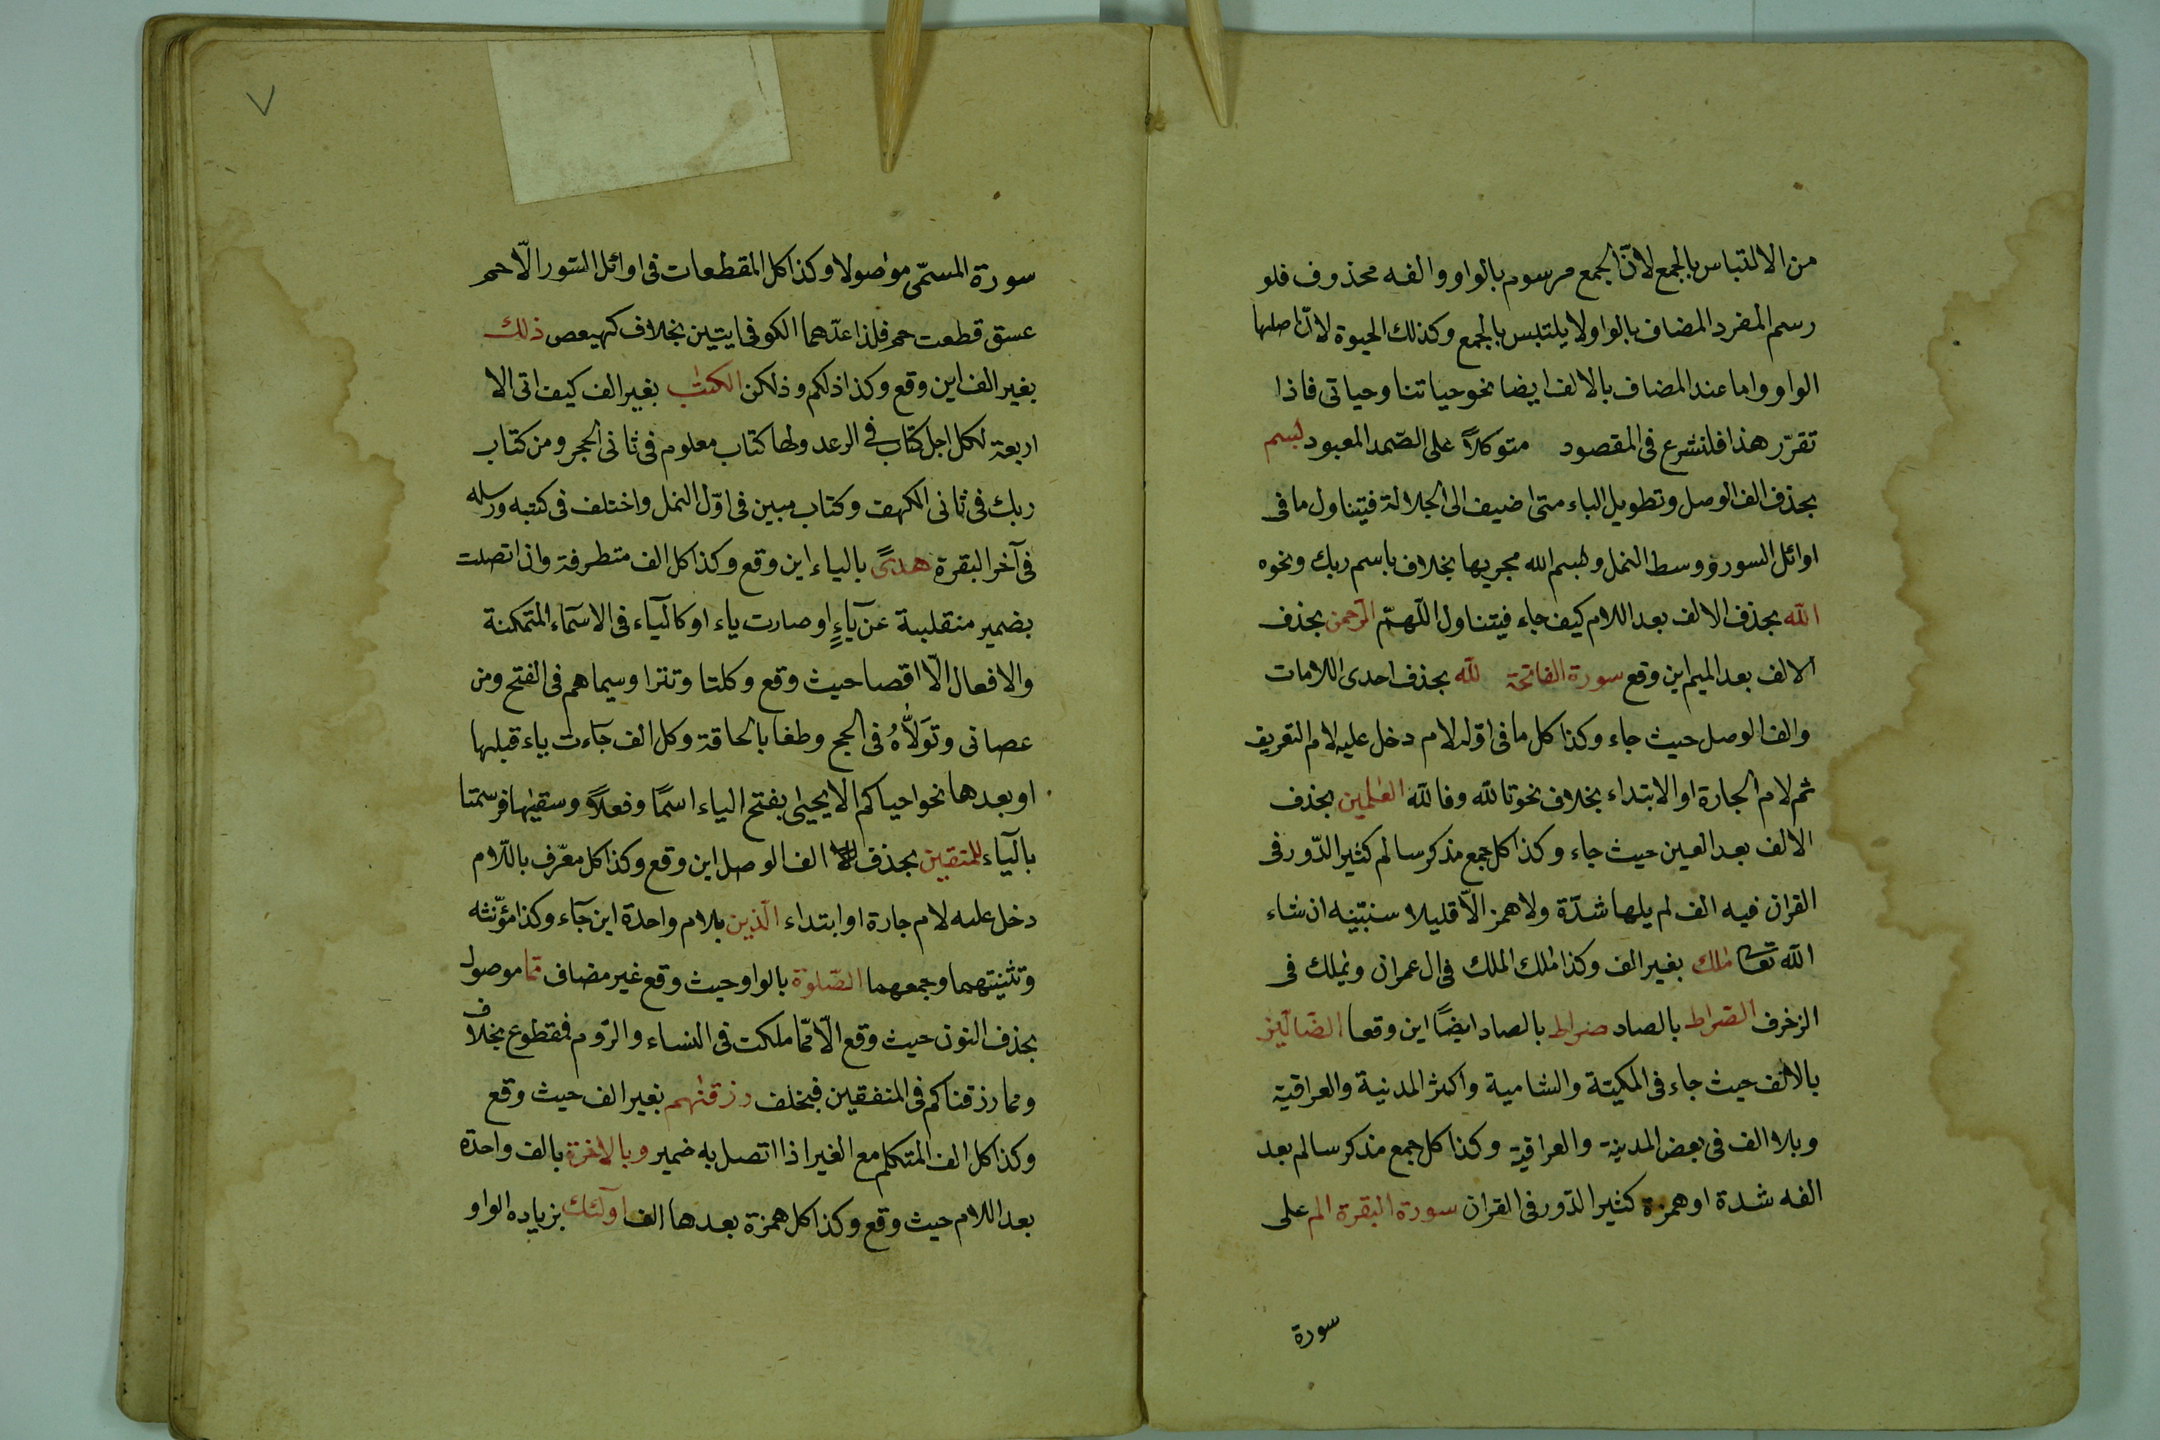 من الالتباس بالجمع لانّ الجمع مرسوم بالواو والفه محذوف فلو
رسم المفرد المضاف بالواو لا يلتبس بالجمع وكذلك الحيوة لانّ اصلها
الواو واما عند المضاف بالالف ايضا نحو حياتنا وحياتى فاذا
تقرّر هذا فلنشرع فى المقصود متوكلاً على الصّمد المعبود بسم
بحذف الف الوصل وتطويل الباء متى اضيف الى الجلالة فيتناول ما فى
اوائل السور ووسط النمل وبسم الله مجريها بخلاف باسم ربك ونحوه
الله بحذف الالف بعد اللام كيف جاء فيتناول اللّهمّ الرّحمن بحذف
الالف بعد الميم اين وقع سورة الفاتحة للّه بحذف احدى اللامات
والف الوصل حيث جاء وكذا كل ما فى اوّله لام دخل عليه لام التعريف
ثم لام الجارة او الابتداء بخلاف نحو تالله وفالله العٰلمين بحذف
الالف بعد العين حيث جاء وكذا كل جمع مذكر سالم كثير الدّور فى
القران فيه الف لم يلها شدّة ولا همز الاّ قليلا سنبيّنه ان شاء
الله تعا ملك بغير الف وكذا ملك الملك فى ال عمران ويملك فى
الزخرف الصّراط بالصاد صراط بالصاد ايضاً اين وقعا الضّالّين
بالالف حيث جاء فى المكيّة والشامية واكثر المدنية والعراقية
وبلا الف فى بعض المدنية والعراقية وكذا كل جمع مذكر سالم بعد
الفه شدة او همزة كثير الدّور فى القران سورة البقرة الم على
سورة
سورة المسمّى موصولا وكذا كل المقطعات فى اوائل السّور الاّ حم
عسق قطعت حم فلذا عدّهما الكوفى ايتين بخلاف كهيعص ذلك
بغير الف اين وقع وكذا ذلكم وذلكن الكتٰب بغير الف كيف اتى الا
اربعة لكل اجل كتاب فى الرعد ولها كتاب معلوم فى ثانى الحجر ومن كتاب
ربك فى ثانى الكهف وكتاب مبين فى اوّل النمل واختلف فى كتبه ورسله
فى آخر البقرة هدىً بالياء اين وقع وكذا كل الف متطرفة وان اتصلت
بضمير منقلبة عن ياءٍ او صارت ياء او كالياء فى الاسماء المتمكنة
والافعال الاّ اقصا حيث وقع وكلتا وتترا وسيماهم فى الفتح ومن
عصانى وتَوَلاّهُ فى الحج وطغا بالحاقة وكل الف جاءت ياء قبلها
او بعدها نحو احياكم الا يحيىٰ بفتح الياء اسمًا وفعلاً وسقيٰها فرسمتا
بالياء للمتقين بحذف الف الوصل اين وقع وكذا كل معرّف باللّام
دخل عليه لام جارة او ابتداء الّذين بلام واحدة اين جاء وكذا مؤنّثه
وتثنيتهما وجمعهما الصّلوة بالواو حيث وقع غير مضاف ممّا موصول
بحذف النون حيث وقع الاّ ممّا ملكت فى النساء والرّوم فمقطوع بخلاف
ومما رزقناكم فى المنفقين فبخلف رزقنٰهم بغير الف حيث وقع
وكذا كل الف المتكلم مع الغير اذا اتصل به ضمير وبالاخرة بالف واحدة
بعد اللام حيث وقع وكذا كل همزة بعدها الف اولئك بزياده الواو